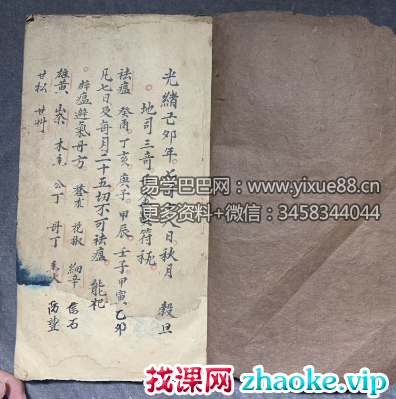 光緒己卯年七百 八日秋月 穀旦
地司三奇 符秘
祛瘟 癸酉 丁亥 庚子 甲辰 壬子 甲寅 乙卯
凡七日及每月二十五切不可祛瘟 能祀
辟瘟避氣丹方 蒼朮 花椒 細辛 信石
雄黄 山奈 木香 公丁 母丁
甘松 甘艸
易学巴巴网:www.yixue88.cn
更多资料+微信:3458344044
找课网zhaoke.vip